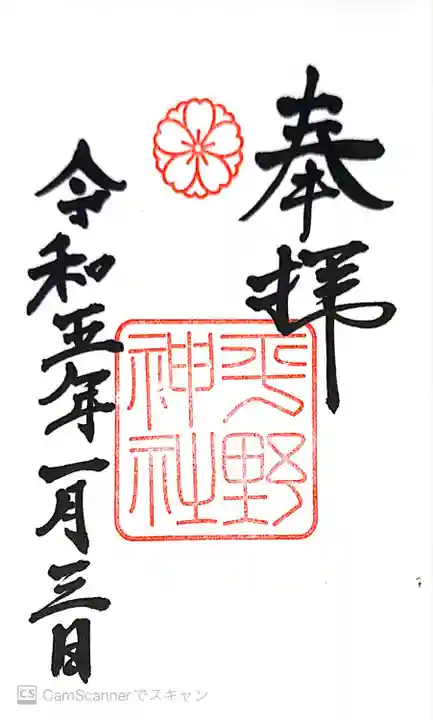 奉拝
平野
神社
令和五年一月三日
CS CamScannerでスキャン